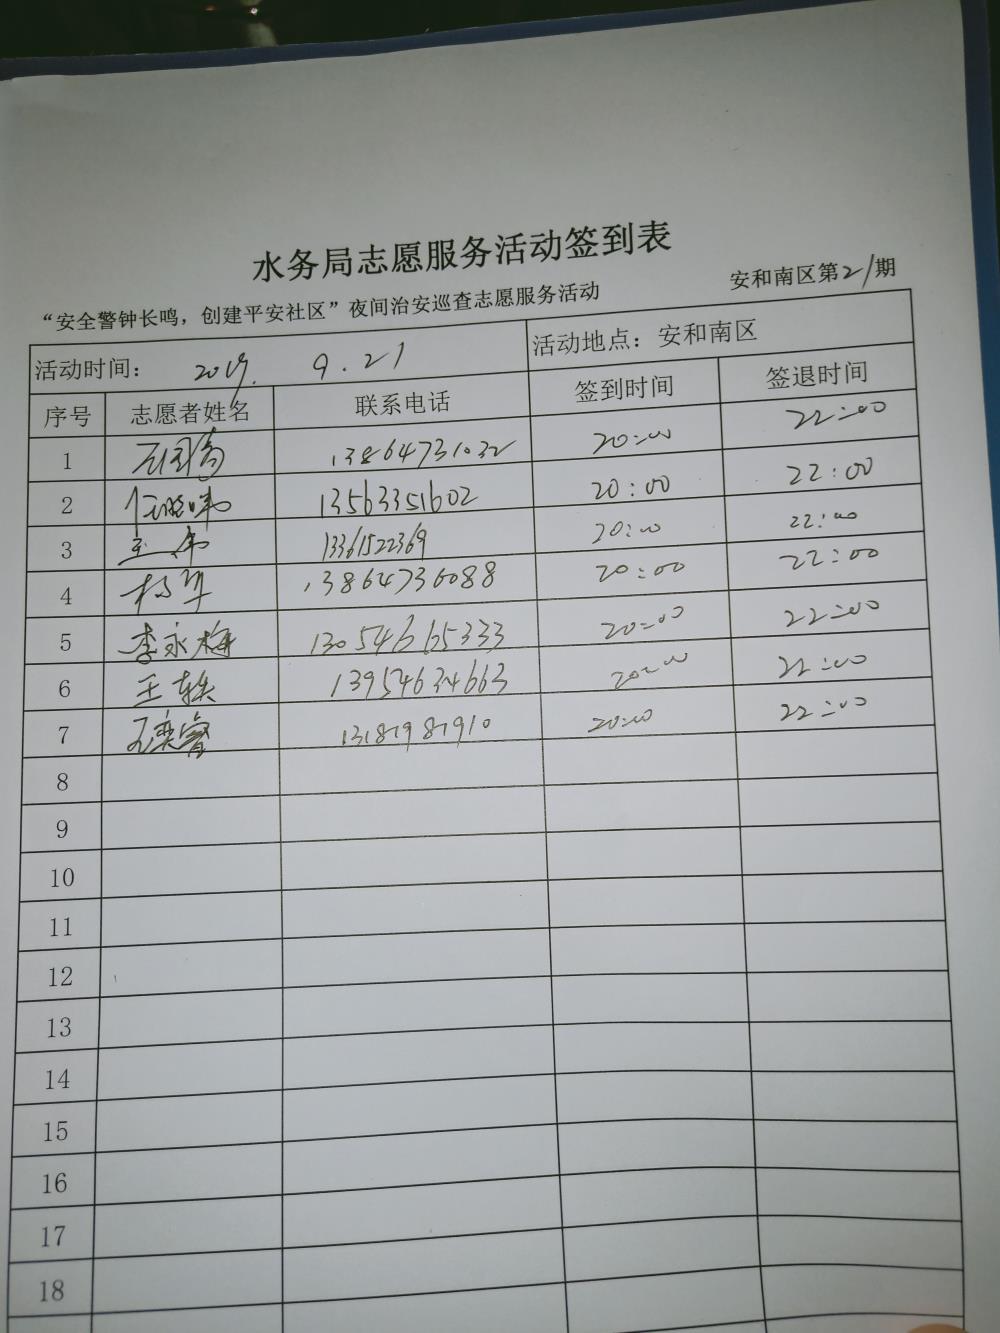 水务局志愿服务活动签到表
“安全警钟长鸣，创建平安社区”夜间治安巡查志愿服务活动 安和南区第21期
活动时间： 2019. 9.21 活动地点：安和南区
序号 志愿者姓名 联系电话 签到时间 签退时间
1 13864731032 20:00 22:00
2 任晓唯 13563351602 20:00 22:00
3 13361522369 20:00 22:00
4 杨华 13864736088 20:00 22:00
5 李永梅 13054665333 20:00 22:00
6 王轶 13954634663 20:00 22:00
7 石奕睿 13181981910 20:00 22:00
8
9
10
11
12
13
14
15
16
17
18